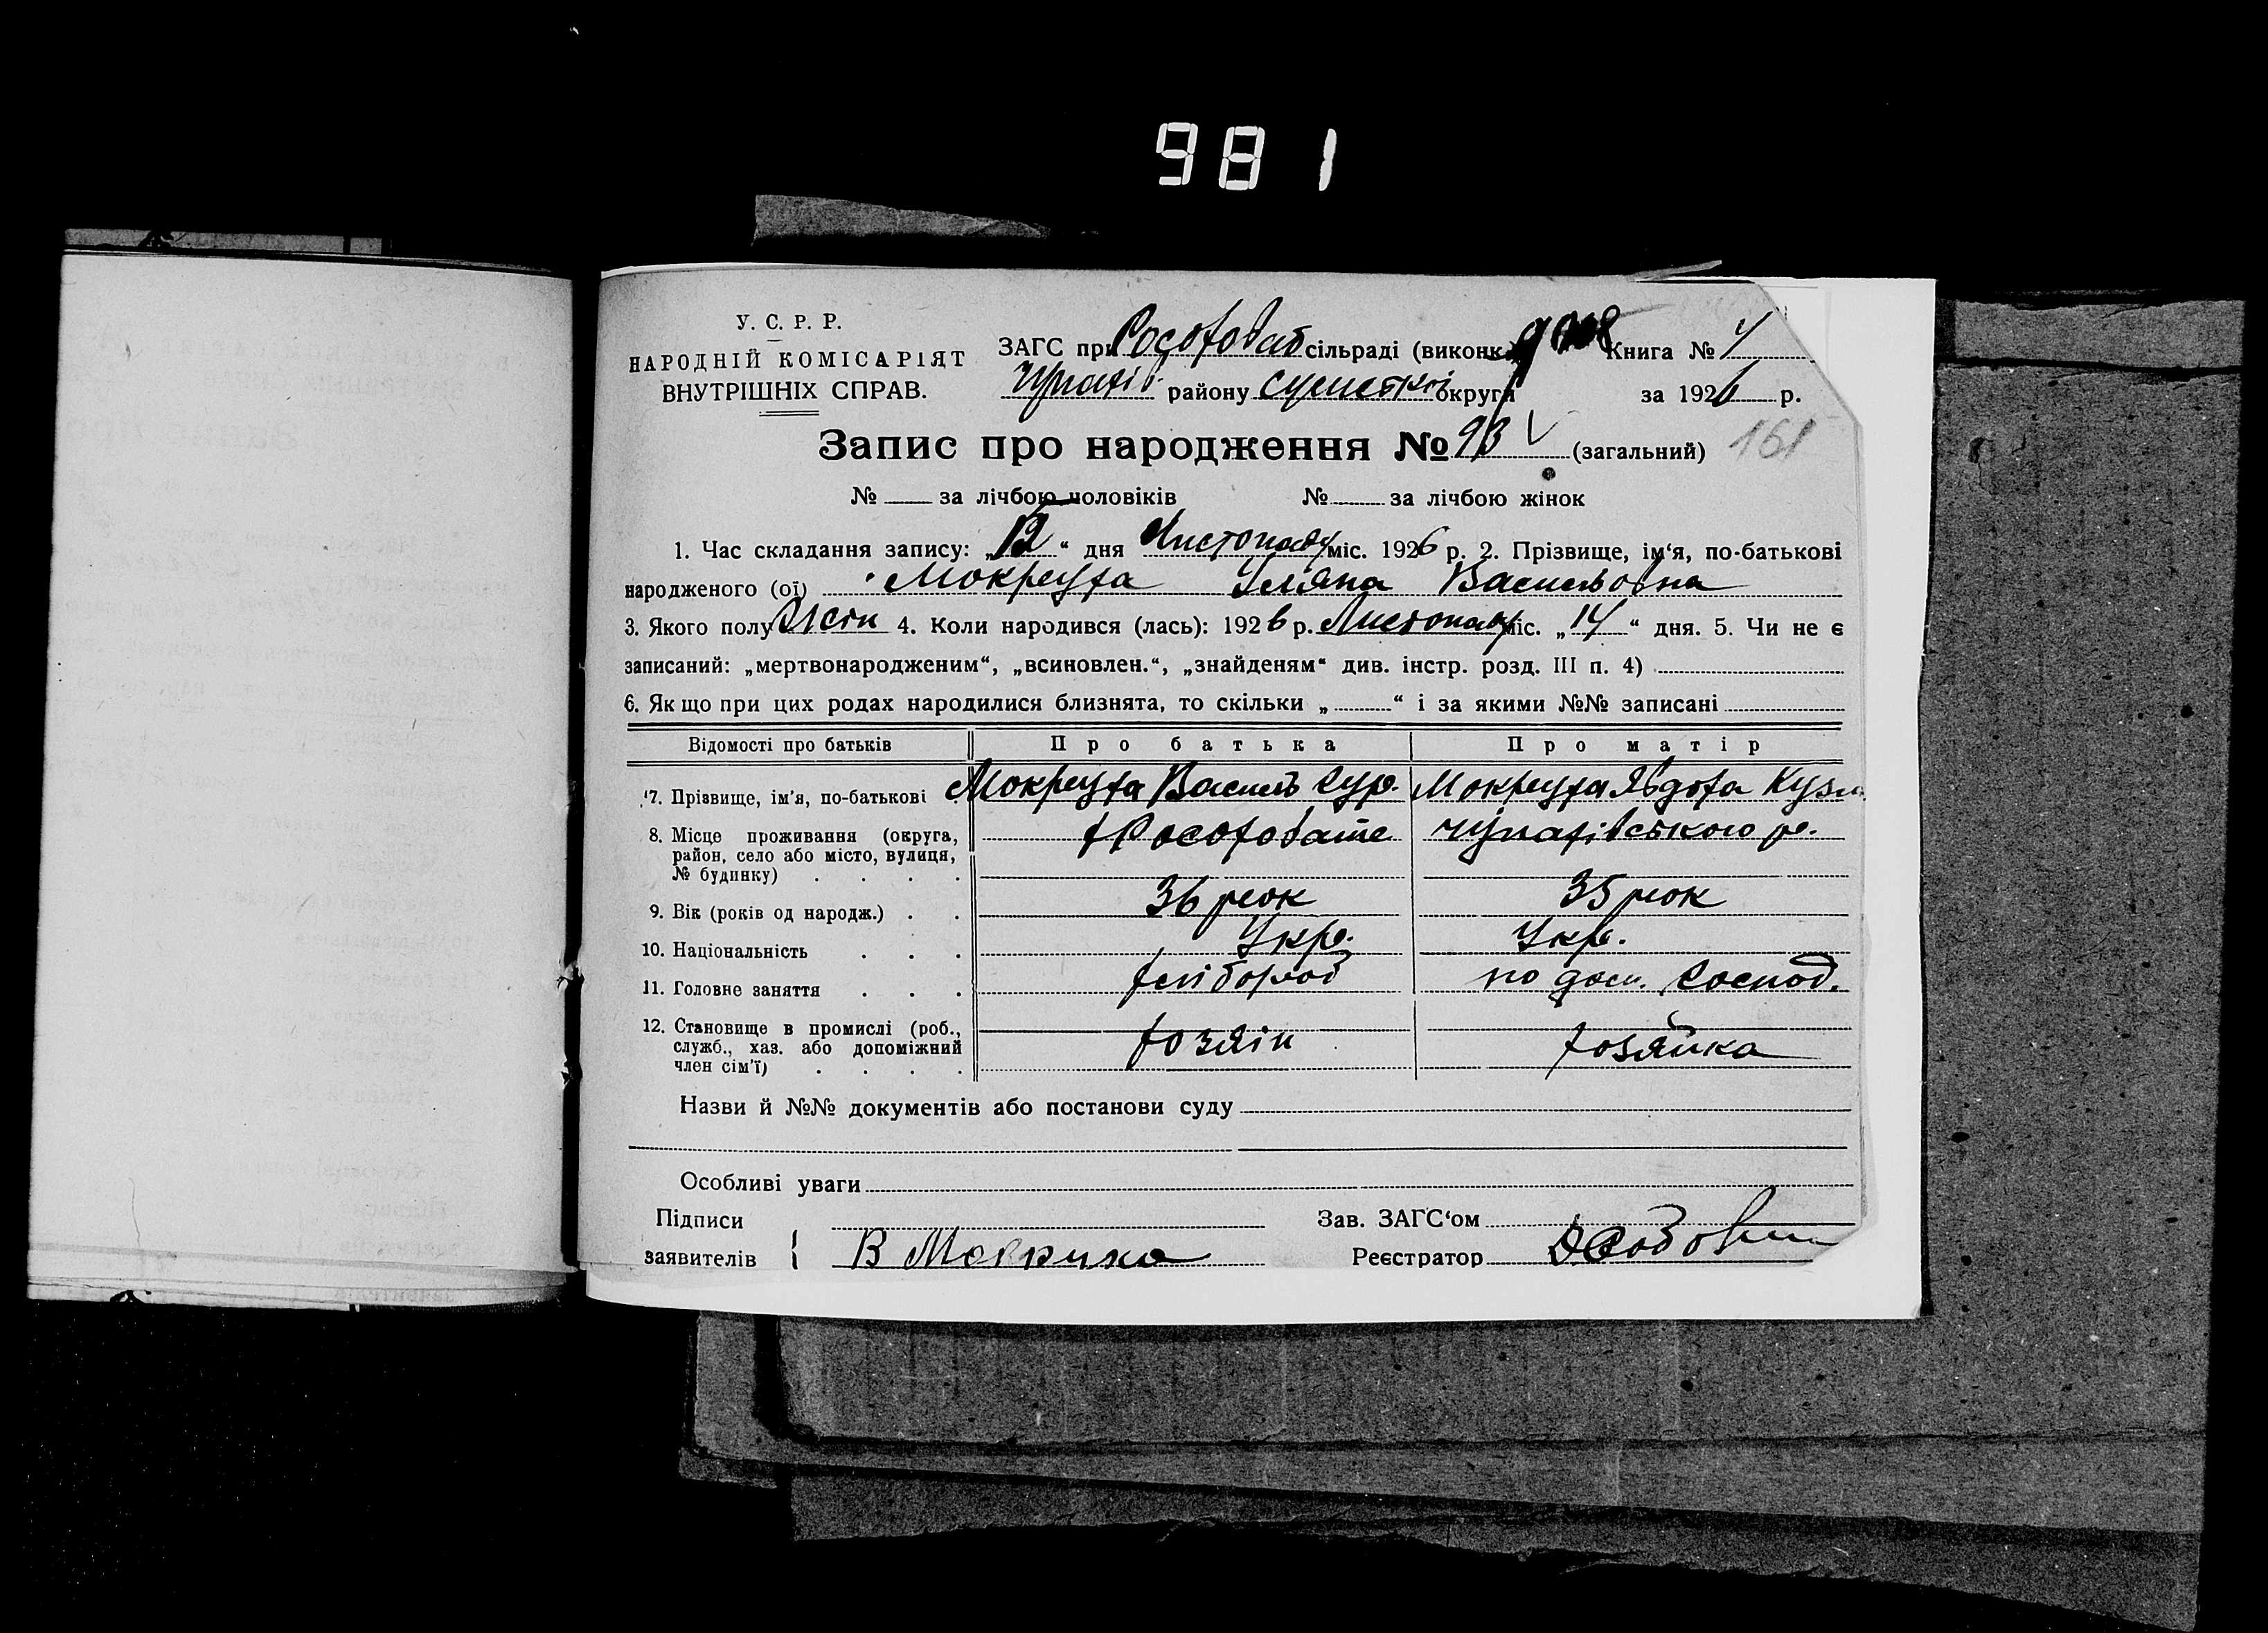 981
У. С. Р. Р.
НАРОДНІЙ КОМІСАРІЯТ
ВНУТРІШНІХ СПРАВ.
ЗАГС при Росоховат сільраді (виконк.) Книга №
Чупахів району Сумської округи за 1926 р.
Запис про народження № 93 (загальний) 161
№ за лічбою чоловіків № за лічбою жінок
1. Час складання запису: „ “ дня Листопаду міс. 1926 р. 2. Прізвище, ім‘я, по-батькові
народженого (ої) Мокреуха Уляна Васильовна
3. Якого полу Жін 4. Коли народився (лась): 1926 р. Листопаду міс. „14“ дня. 5. Чи не є
записаний: „мертвонародженим“, „всиновлен.“, „знайденям“ див. інстр. розд. III п. 4)
6. Якщо при цих родах народилися близнята, то скільки „ “ і за якими №№ записані
Відомості про батьків Про батька Про матір
7. Прізвище, ім'я, по-батькові Мокреуха Василь Мокреуха Явдоха Кузм
8. Місце проживання (округа, Х Росоховате Чупахівського р.
район, село або місто, вулиця,
№ будинку)
9. Вік (років од народж.) 36 рок 35 рок
10. Національність Укр. Укр.
11. Головне заняття хлібороб по дом. господ.
12. Становище в промислі (роб., хозяін хозяйка
служб., хаз. або допоміжний
член сім'ї)
Назви й №№ документів або постанови суду
Особливі уваги
Підписи Зав. ЗАГС‘ом
заявителів В Реєстратор